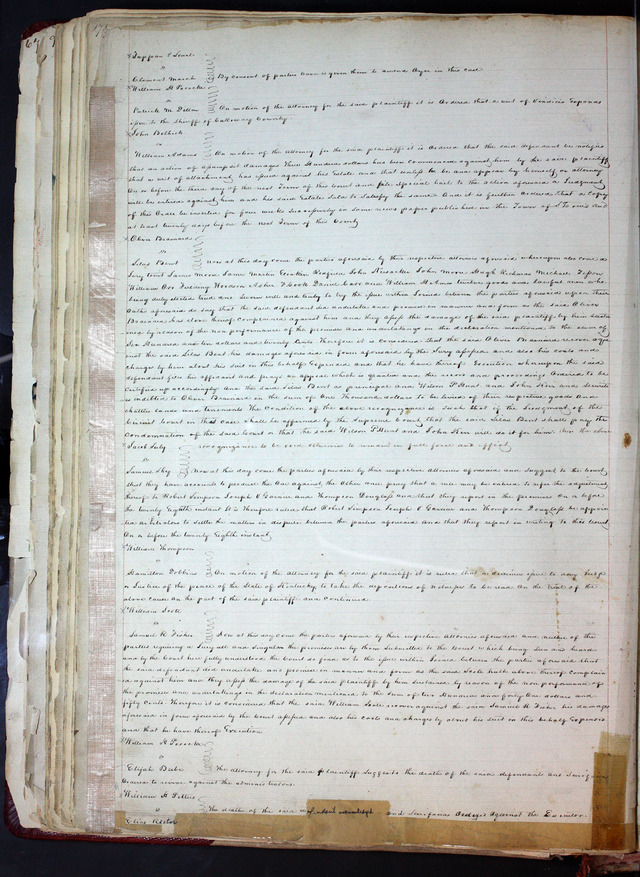 67 9
Tappan & Searle
vs
Clement March By consent of parties leave is given them to amend in this case
William H Pococke
vs
Patrick M. Dillon On motion of the attorney for the said plaintiff it is Ordered that a writ of Venditio Exponas
issue to the Sheriff of Calloway County
John Bolhick
vs
William Adams On motion of the Attorney for the said plaintiff it is Ordered that the said defendant be notified
that an action of assumpsit damages Three Hundred dollars has been commenced against him by the said plaintiff
that a writ of attachment has issued against his Estate and that unless he be and appear by himself or attorney
On or before the third day of the next Term of this Court and file special bail to the action aforesaid a Judgment
will be entered against him and his said Estate Sold to Satisfy the same And it is further Ordered that a copy
of this Order be inserted for four weeks Successively in some news paper published in the Town of St Louis
at least twenty days before the next Term of this Court
Oliver Brainard
vs
Silas Bent now at this day come the parties aforesaid by their respective attornies aforesaid whereupon also come a
Jury to wit James Moore James Martin John John Moore Hugh Michael
William
being duly elected tried and Sworn well and truly to try the issue within Joined between the parties aforesaid upon their
Oaths aforesaid do say that the said defendant did undertake and promise in manner and form as the said Oliver
Brainard has above thereof complained against him and they assess the damage of the said plaintiff by him sustained
by reason of the non performance of the promises and undertakings in the declaration mentioned to the sum of
Six Hundred and ten dollars and twenty Cents Therefore it is considered that the said Oliver Brainard recover
the said Silas Bent his damages aforesaid in form aforesaid by the Jury assessed and also his costs and
charges by him about his suit in this behalf Expended and that he have thereof Execution whereupon the said
defendant files his affidavit and prays an appeal which is granted and the record and proceedings Ordered to be
certified up accordingly And the said Silas Bent as principal and Wilson P Hunt and John Kerr as Security
is indebted to Oliver Brainard in the sum of One Thousand dollars to be levied of their respective goods And
chattles lands and tenements The Condition of the above recognizance is Such that if the Judgment of the
Circuit Court in this case shall be affirmed by the Supreme Court that the said Silas Bent shall pay the
condemnation of the said Court or that the said Wilson P Hunt and John Kerr will do it for him then the above
recognizance to be void otherwise to remain in full force and effect
Jacob
vs
Samuel Now at this day come the parties aforesaid by their respective Attornies aforesaid and suggest to the Court
that they have accounts to produce the One against the Other and pray that a rule may be entered to refer the adjustment
thereof to Robert Simpson Joseph C Garnier and Thompson Douglass and that they report in the premises On or before
the twenty Eighth instant It is Therefore ruled that Robert Simpson Joseph C Garnier and Thompson Douglass be appointed
as Arbitrators to Settle the matter in dispute between the parties aforesaid and that they report in writing to this Court
On or before the twenty Eighth instant
William Thompson
vs
Hamilton Robbins On motion of the Attorney for the said plaintiff it is ruled that a dedimus issue to any Judge
or Justice of the peace of the State of Kentucky to take the depositions of witnesses to be read On the trial of the
above cause On the part of the said plaintiff and continued
William Scott
vs
Samuel R Fisher Now at this day come the parties aforesaid by their respective Attornies aforesaid and neither of the
parties requiring a Jury all and Singular the premises are by them Submitted to the Court which being Seen and heard
and by the Court here fully understood the Court do find as to the issue within Joined between the parties aforesaid that
the said defendant did undertake and promise in manner and form as the said Scott hath above thereof complained
against him and they assess the damage of the said plaintiff by him Sustained by reason of the non performance of
the promises and undertakings in the declaration mentioned to the Sum of two Hundred and forty One dollars and
fifty Cents Therefore it is considered that the said William Scott recover against the said Samuel R Fisher his damages
aforesaid in form aforesaid by the Court assessed and also his costs and charges by about his suit in this behalf Expended
and that he have thereof Execution
William H Pococke
vs
Elijah Bebe The attorney for the said plaintiff Suggests the death of the said defendant and
to revive against the administrators
William H Pettus
vs
The death of the said and Scirefacias Ordered Against the Executor
Elias Rector